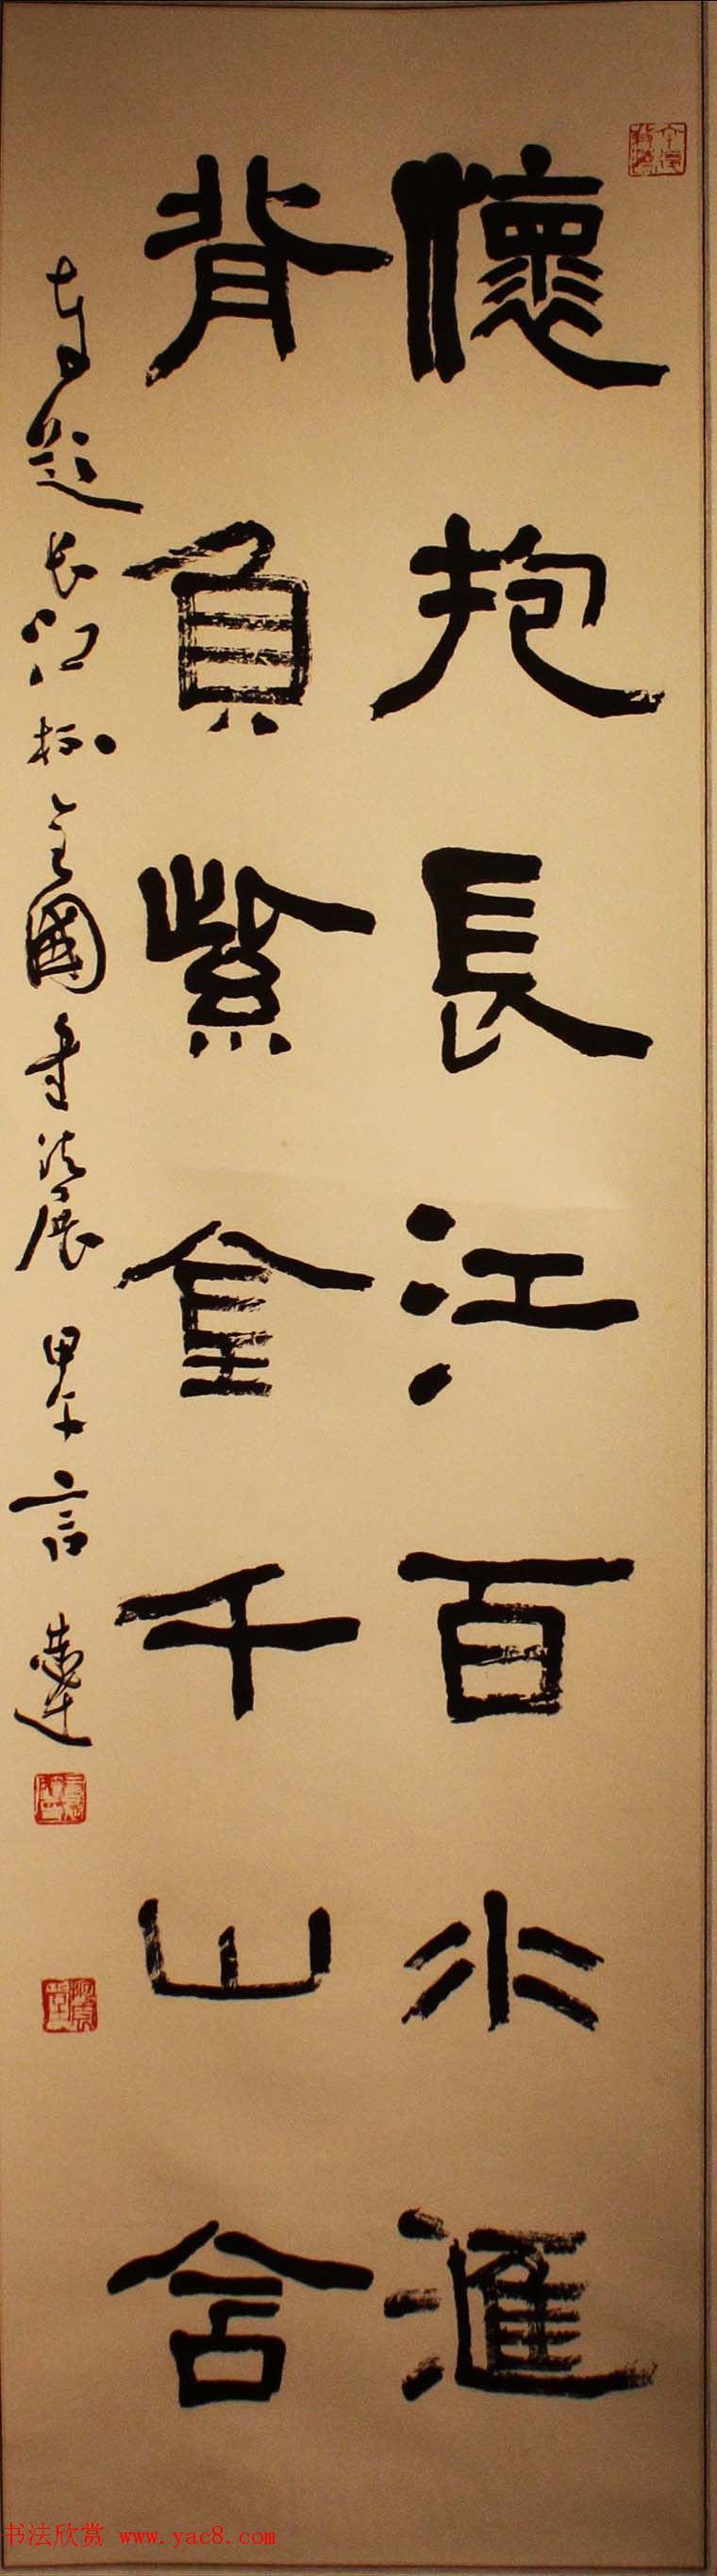 懷抱長江百水滙
背負紫金千山含
奉題長江杯全國書法展 甲午 言恭達
书法欣赏 www.yac8.com